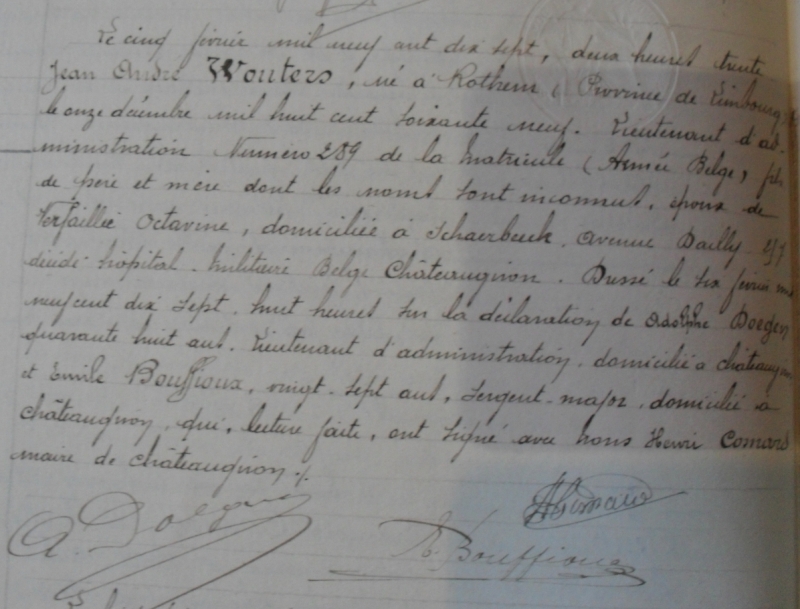 Le cinq février mil neuf cent dix sept, deux heures trente
Jean André Wouters, né à Rothem (Province de Limbourg)
le onze décembre mil huit cent soixante neuf. Lieutenant d'ad-
ministration Numéro 289 de la Matricule (Armée Belge) fils
de père et mère dont les noms sont inconnus, époux de
Verfaillie Octavine, domiciliée à Schaerbeek, avenue Dailly
décédé hôpital militaire Belge Châteaugiron. Dressé le six février mil
neuf cent dix sept, huit heures sur la déclaration de Adolphe Doegen
quarante huit ans. Lieutenant d'administration, domicilié à châteaugiron
et Emile Bouffioux, vingt-sept ans, sergent-major, domicilié à
châteaugiron, qui, lecture faite, ont signé avec nous Henri Comard
maire de châteaugiron ./.
A. Doegen
E. Bouffioux